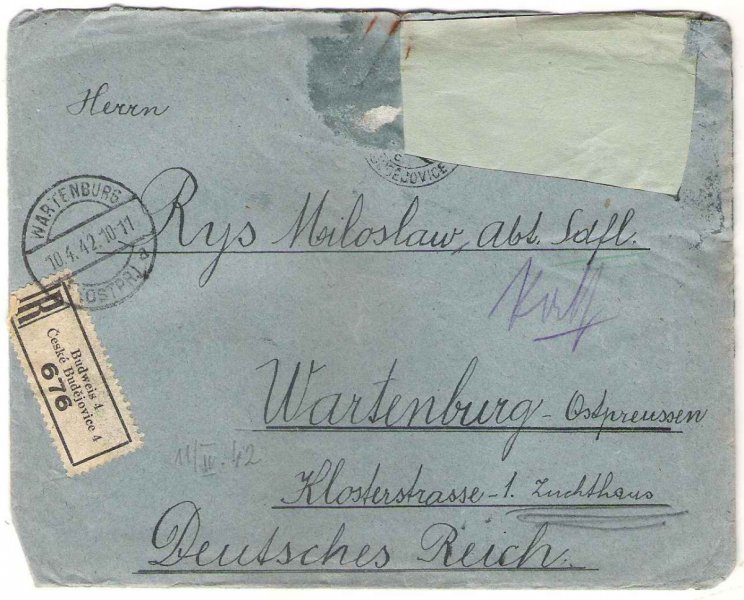 Herrn
UDĚJOVICE
WARTENBURG
10.4.42.10-11
(OSTPR)
a
Rys Miloslaw, abt. Sdfl.
R
Budweis 4
České Budějovice 4
676
Wartenburg - Ostpreussen
11/IV.42
Klosterstrasse - 1. Zuchthaus
Deutsches Reich.